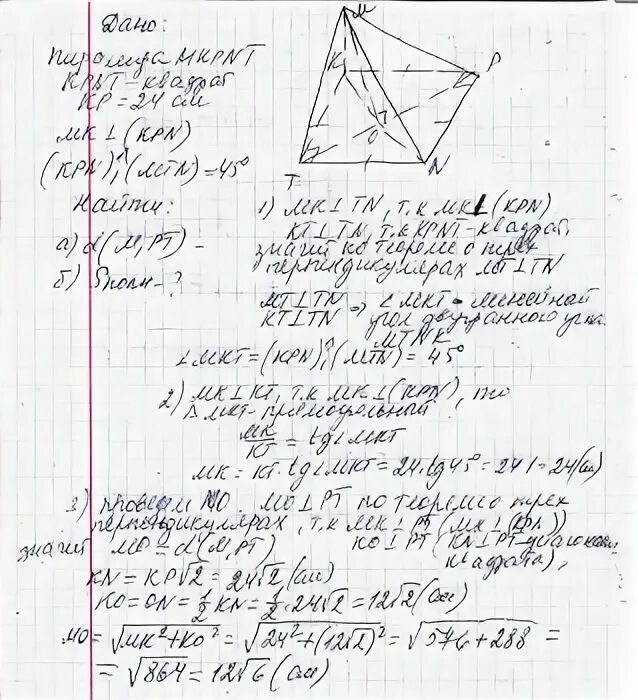 Дано:
Пирамида MKPNT
KPNT - квадрат
KP = 24 см
MK ⊥ (KPN)
(KPN);^(MTN) = 45°
Найти:
а) d(M, PT) -
б) Sполн - ?
M
K
P
O
T
N
1) MK ⊥ TN, т.к MK ⊥ (KPN)
KT ⊥ TN, т.к KPNT - квадрат,
значит по теореме о трех
перпендикулярах MT ⊥ TN
MT ⊥ TN
KT ⊥ TN ⇒ ∠MKT - линейный
угол двугранного угла
MTNK
∠MKT = (KPN);^(MTN) = 45°
2) MK ⊥ KT, т.к MK ⊥ (KPN), то
△MKT - прямоугольный
MK/KT = tg∠MKT
MK = KT · tg∠MKT = 24 · tg45° = 24·1 = 24 (см)
3) проведем MO. MO ⊥ PT по теореме о трех
перпендикулярах, т.к MK ⊥ PT (MK ⊥ (KPN))
значит MO = d(M, PT) KO ⊥ PT (KN ⊥ PT - диагонали
квадрата),
KN = KP√2 = 24√2 (см)
KO = ON = 1/2 KN = 1/2 · 24√2 = 12√2 (см)
MO = √MK² + KO² = √24² + (12√2)² = √576 + 288 =
= √864 = 12√6 (см)